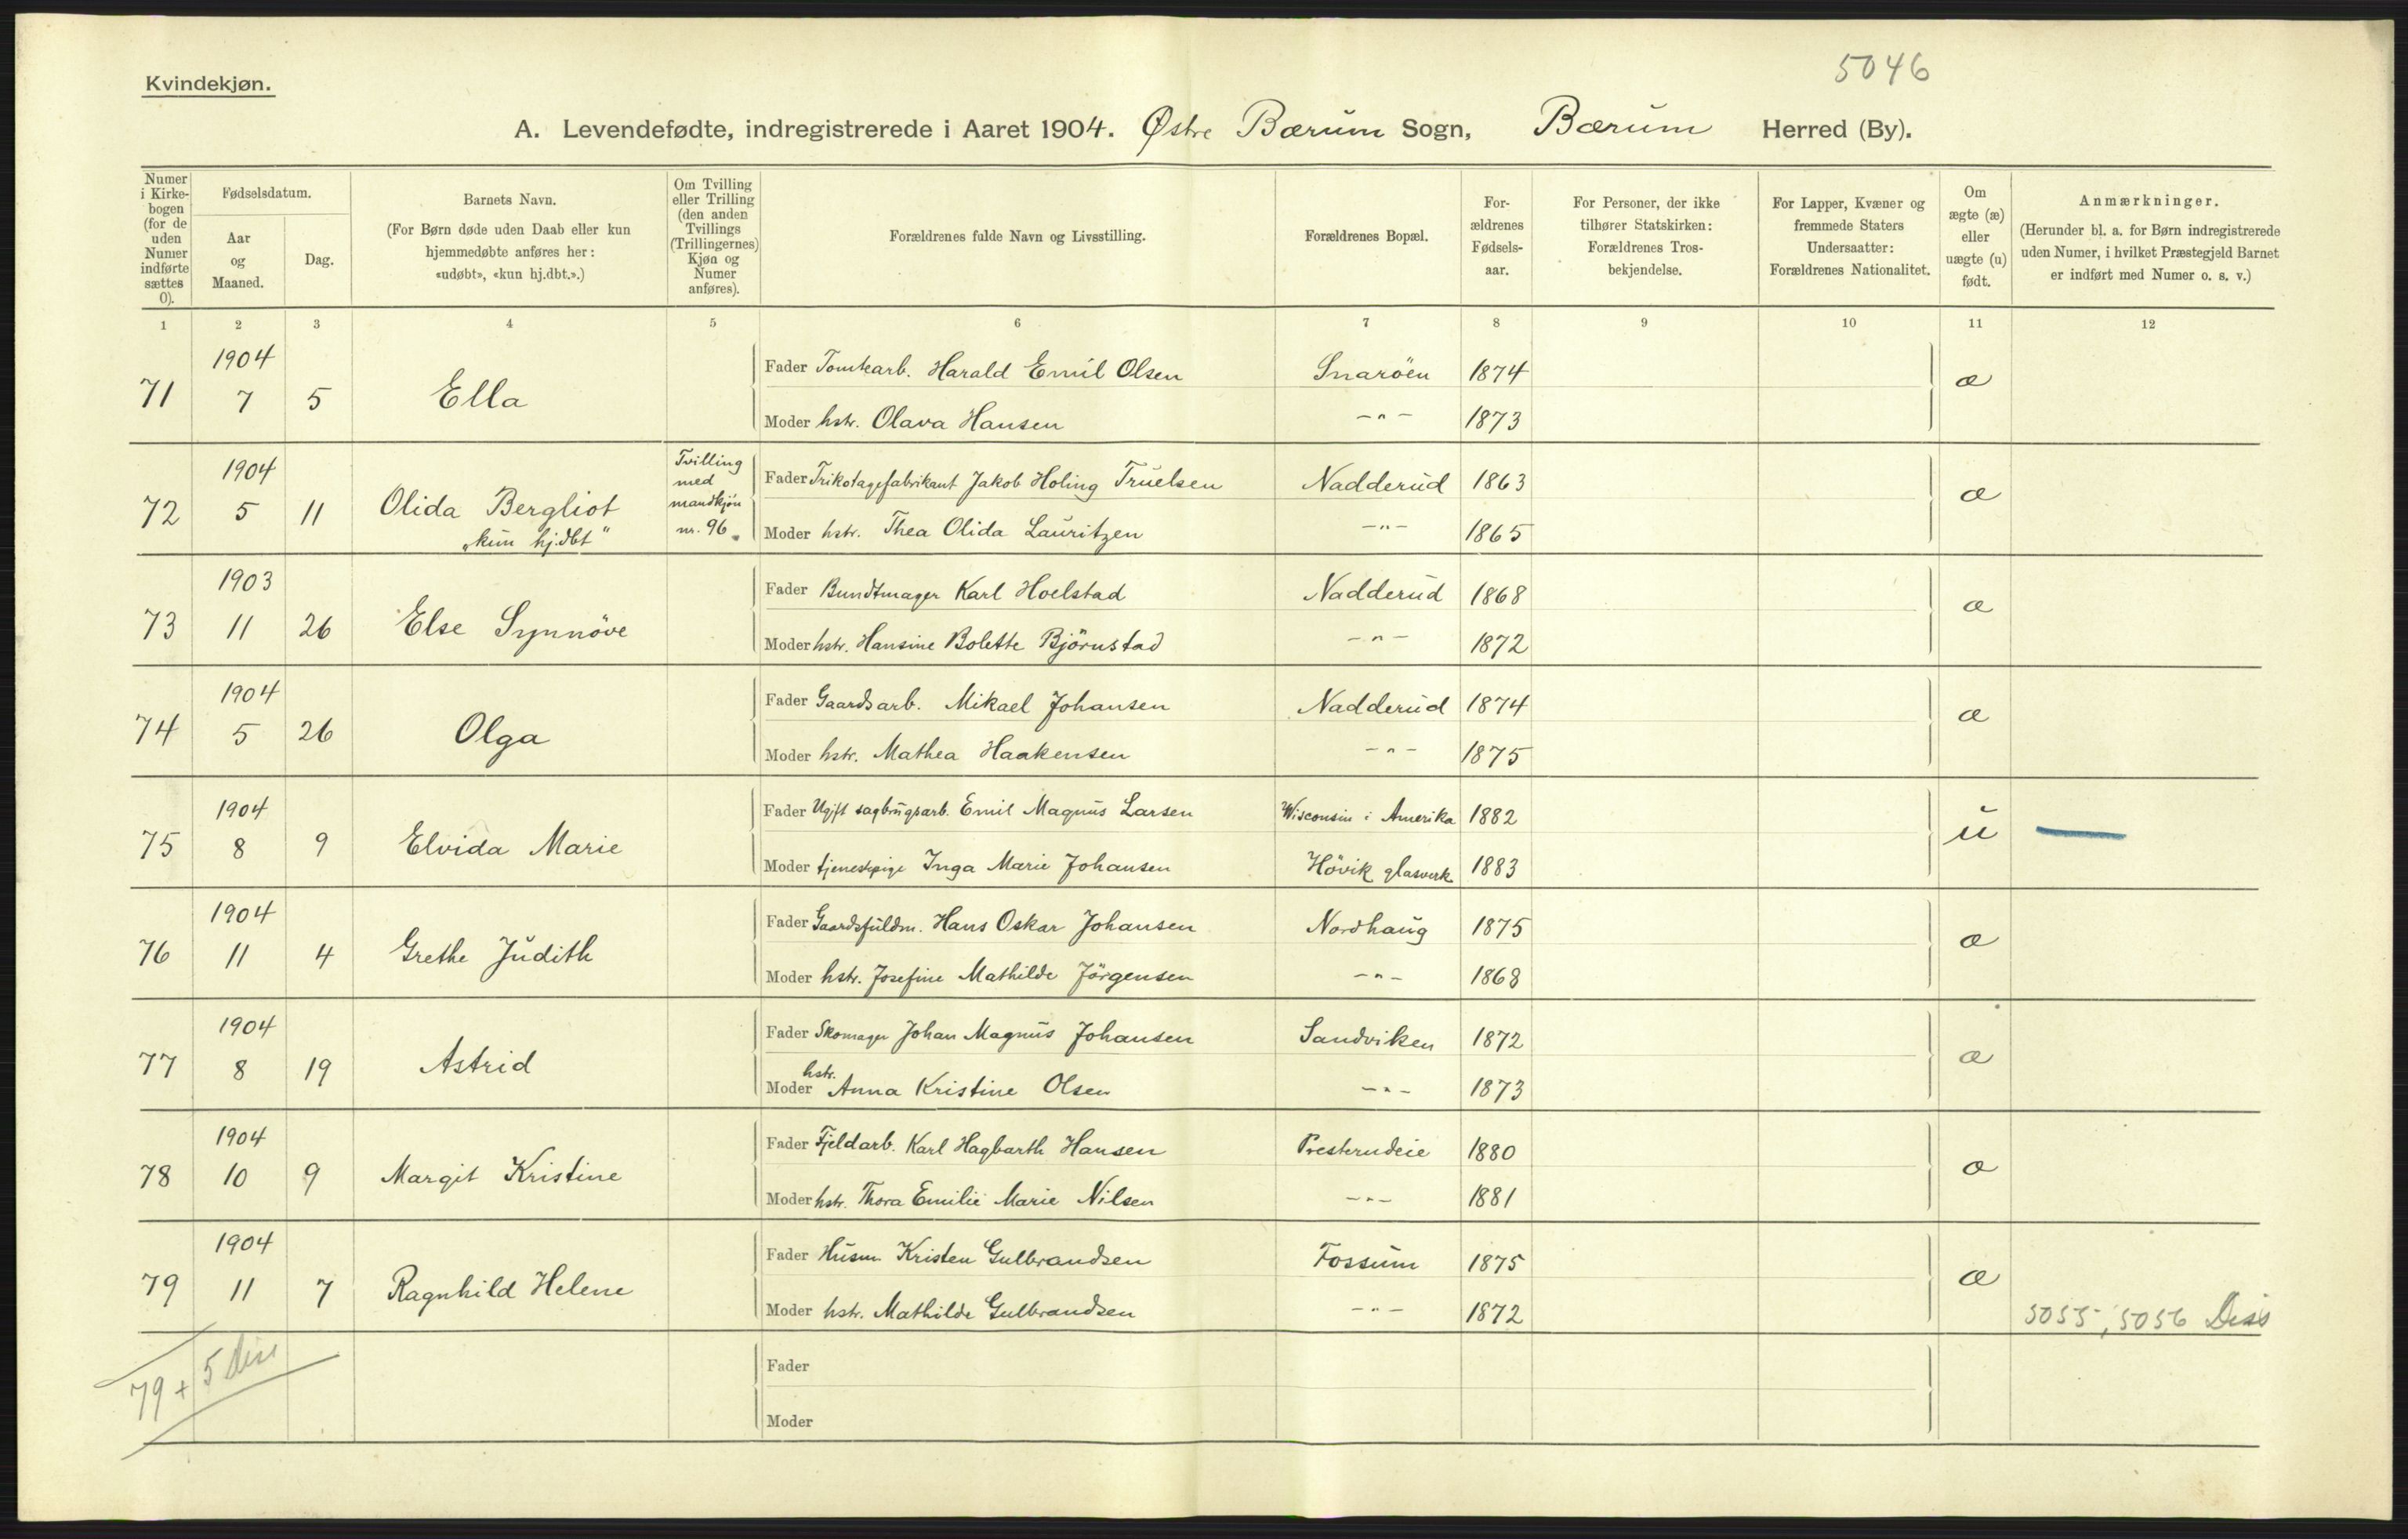 Kvindekjøn.
5046
A. Levendefødte, indregistrerede i Aaret 1904. Østre Bærum Sogn, Bærum Herred (By).
Numer i Kirkebogen (for de uden Numer indførte sættes 0).
Fødselsdatum.
Aar og Maaned.
Dag.
Barnets Navn.
(For Børn døde uden Daab eller kun hjemmedøbte anføres her: «udøbt», «kun hj.dbt.».)
Om Tvilling eller Trilling (den anden Tvillings (Trillingernes) Kjøn og Numer anføres).
Forældrenes fulde Navn og Livsstilling.
Forældrenes Bopæl.
Forældrenes Fødselsaar.
For Personer, der ikke tilhører Statskirken: Forældrenes Trosbekjendelse.
For Lapper, Kvæner og fremmede Staters Undersaatter: Forældrenes Nationalitet.
Om ægte (æ) eller uægte (u) født.
Anmærkninger.
(Herunder bl. a. for Børn indregistrerede uden Numer, i hvilket Præstegjeld Barnet er indført med Numer o. s. v.)
1 2 3 4 5 6 7 8 9 10 11 12
71 1904 7 5 Ella Fader Tomtearb. Harald Emil Olsen Snaröen 1874 æ
Moder hstr. Olava Hansen -"- 1873
72 1904 5 11 Olida Bergliot „kun hj.dbt" Tvilling med mandkjøn nr. 96. Fader Trikotagefabrikant Jakob Holing Truelsen Nadderud 1863 æ
Moder hstr. Thea Olida Lauritzen -"- 1865
73 1903 11 26 Else Synnöve Fader Bundtmager Karl Hoelstad Nadderud 1868 æ
Moder hstr. Hansine Bolette Björnstad -"- 1872
74 1904 5 26 Olga Fader Gaardsarb. Mikael Johansen Nadderud 1874 æ
Moder hstr. Mathea Haakensen -"- 1875
75 1904 8 9 Elvida Marie Fader Ugift sagbrugsarb. Emil Magnus Larsen Wisconsin i Amerika 1882 u
Moder tjenestepige Inga Marie Johansen Hövik glasverk 1883
76 1904 11 4 Grethe Judith Fader Gaardsfuldm. Hans Oskar Johansen Nordhaug 1875 æ
Moder hstr. Josefine Mathilde Jörgensen -"- 1868
77 1904 8 19 Astrid Fader Skomager Johan Magnus Johansen Sandviken 1872 æ
Moder hstr. Anna Kristine Olsen -"- 1873
78 1904 10 9 Margit Kristine Fader Fjeldarb. Karl Hagbarth Hansen Presterudeie 1880 æ
Moder hstr. Thora Emilie Marie Nilsen -"- 1881
79 1904 11 7 Ragnhild Helene Fader Husm. Kristen Gulbrandsen Fossum 1875 æ
Moder hstr. Mathilde Gulbrandsen -"- 1872
5055, 5056 Diss
79 + 5 diss
Fader
Moder